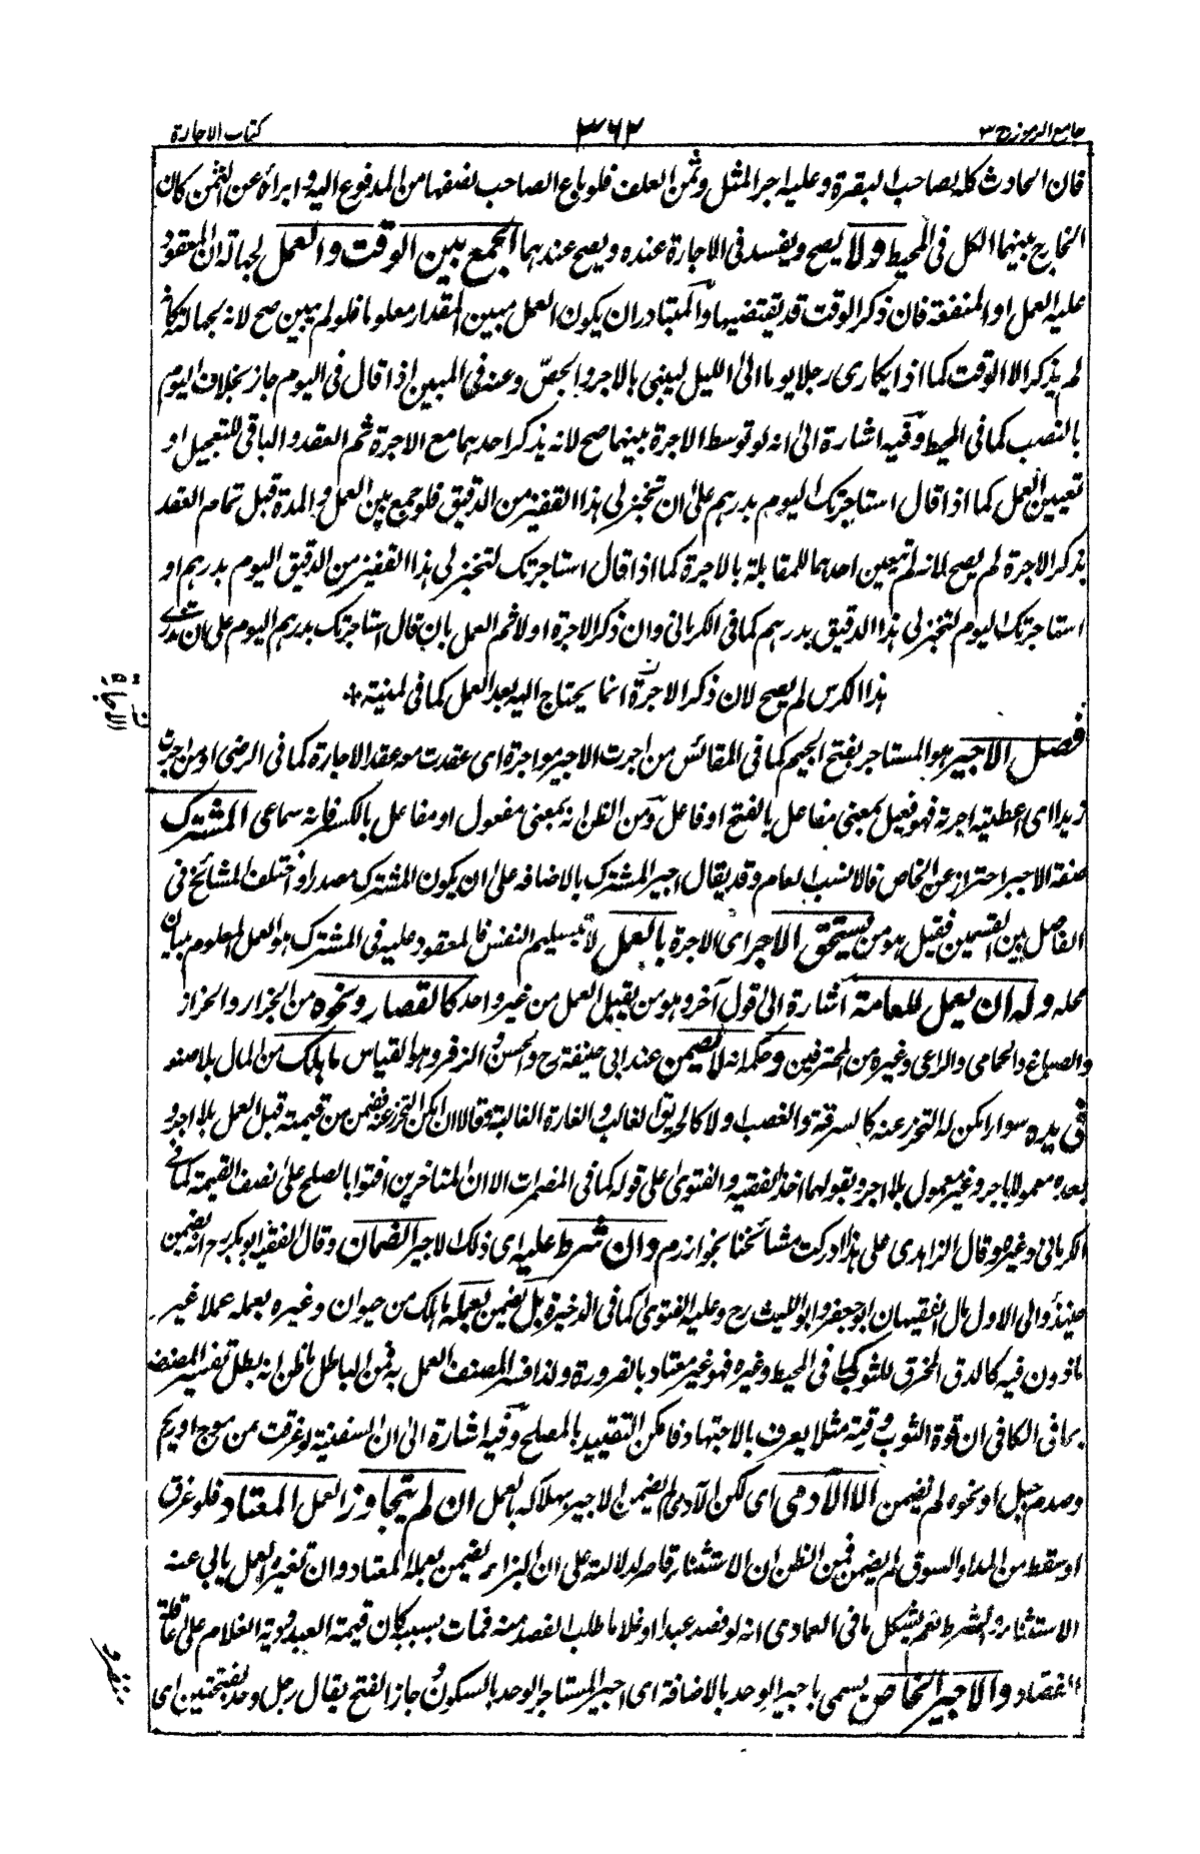 جامع الرموز ج ٣
٣٦٢
كتاب الاجارة
فان الحادث كله لصاحب البقرة وعليه اجر المثل وثمن العلف فلو باع الصاحب نصفها من المدفوع اليه وابرأه عن الثمن كان
الخارج بينهما الكل فى المحيط ولا يصح ويفسد فى الاجارة عنده ويصح عندهما الجمع بين الوقت والعمل لجهالة ان المعقود
عليه العمل او المنفعة فان ذكر الوقت قد يقتضيها والمتبادر ان يكون العمل مبين المقدار معلوما فلو لم يبين صح لانه لجهالته كانه
لم يذكر الا الوقت كما اذا يكارى رجلا يوما الى الليل ليبنى بالاجر والجص وعنه فى المبين اذا قال فى اليوم جاز بخلاف اليوم
بالنصب كما فى المحيط وفيه اشارة الى انه لو توسط الاجرة بينهما صح لانه يذكر احدهما مع الاجرة ثم العقد والباقى للتعجيل او
تعيين العمل كما اذا قال استاجرتك اليوم بدرهم على ان تخبز لى هذا القفيز من الدقيق فلو جمع بين العمل والمدة قبل تمام العقد
بذكر الاجرة لم يصح لانه لم يتعين احدهما للمقابلة بالاجرة كما اذا قال استاجرتك لتخبز لى هذا القفيز من الدقيق اليوم بدرهم او
استاجرتك اليوم لتخبز لى هذا الدقيق بدرهم كما فى الكرمانى وان ذكر الاجرة اولا ثم العمل بان قال استاجرتك بدرهم اليوم على ان تذرى
هذا الكدس لم يصح لان ذكر الاجرة انما يحتاج اليه بعد العمل كما فى المنية *
فصل الاجير هو المستاجر بفتح الجيم كما فى المقائس من اجرت الاجير مواجرة اى عقدت معه عقد الاجارة كما فى الرضى او من اجرت
زيدا اى اعطيته اجرته فهو فعيل بمعنى مفاعل بالفتح او فاعل ومن الظن انه بمعنى مفعول او مفاعل بالكسر فانه سماعى المشترك
صفة الاجير احتراز عن الخاص فالانسب العام وقد يقال اجير المشترك بالاضافة على ان يكون المشترك مصدرا واختلف المشائخ فى
الفاصل بين القسمين فقيل هو من يستحق الاجر اى الاجرة بالعمل لا بتسليم النفس فالمعقود عليه فى المشترك هو العمل المعلوم ببيان
محله وله ان يعمل للعامة اشارة الى قول آخر وهو من يقبل العمل من غير واحد كالقصار ونحوه من الجزار والخراز
والصباغ والحمامى والراعى وغيره من المحترفين وحكمه انه لا يضمن عند ابى حنيفة رح والحسن الزفر وهو القياس ما هلك من المال بلا صنعه
فى يده سواء امكن له التحرز عنه كالسرقة والغصب او لا كالحريق الغالب والغارة الغالبة وقالا ان امكن التحرز عنه فضمن من قيمته قبل العمل بلا اجر و
بعده معمولا باجر وغير معمول بلا اجر وبقولهما اخذ الفقيه والفتوى على قوله كما فى المضمرات الا ان المتاخرين افتوا بالصلح على نصف القيمة كما فى
الكرمانى وغيره وقال الزاهدى على هذا ادركت مشائخنا بخوارزم وان شرط عليه اى ذلك الاجير الضمان وقال الفقيه ابو بكر رح انه يضمن
حينئذ والى الاول مال الفقيهان ابو جعفر وابو الليث رح وعليه الفتوى كما فى الذخيرة بل يضمن بعمله ما هلك من حيوان وغيره بعمله عملا غير
ماذون فيه كالدق المخرق للثوب كما فى المحيط وغيره فهو غير معتاد بالضرورة ولذا فسر المصنف العمل به فمن الباطل ما ظن انه بطل تفسير المصنف
بما فى الكافى ان قوة الثوب ورقته مثلا يعرف بالاجتهاد فامكن التقييد بالمصلح وفيه اشارة الى ان السفينة لو غرقت من موج او ريح
وصدم جبل او نحوه لم يضمن الا الآدمى اى لكن الآدمى لم يضمن الاجير بهلاكه بالعمل ان لم يتجاوز العمل المعتاد فلو غرق
او سقط من المد او السوق لم يضمن فمن الظن ان الاستثناء قاصر لدلالته على ان البزاء يضمن بعمله المعتاد وان تغير العمل يابى عنه
الاستثناء والشرط نعم يشكل ما فى العمادى انه لو فصد عبدا او غلاما طلب الفصد منه فمات بسببه كان قيمة العبد ودية الغلام على عاقلة
الفصاد والاجير الخاص يسمى باجير الوحد بالاضافة اى اجير المستاجر الوحد بالسكون وجاز الفتح يقال رجل وحد بفتحتين اى